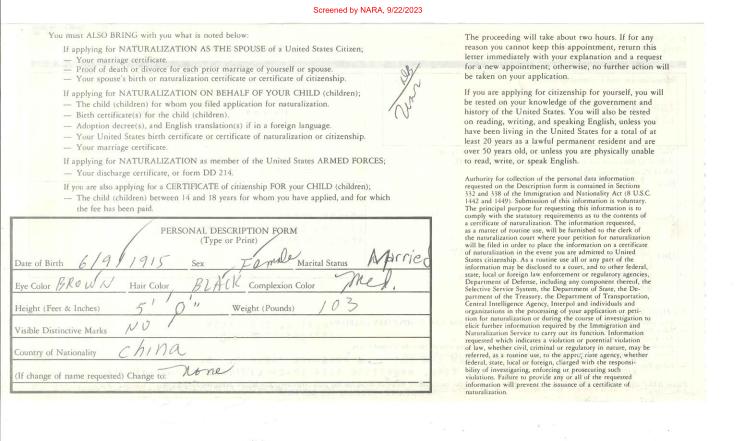 Screened by NARA, 9/22/2023
You must ALSO BRING with you what is noted below:
If applying for NATURALIZATION AS THE SPOUSE of a United States Citizen;
— Your marriage certificate.
— Proof of death or divorce for each prior marriage of yourself or spouse.
— Your spouse's birth or naturalization certificate or certificate of citizenship.
If applying for NATURALIZATION ON BEHALF OF YOUR CHILD (children);
— The child (children) for whom you filed application for naturalization.
— Birth certificate(s) for the child (children).
— Adoption decree(s), and English translation(s) if in a foreign language.
— Your United States birth certificate or certificate of naturalization or citizenship.
— Your marriage certificate.
If applying for NATURALIZATION as member of the United States ARMED FORCES;
— Your discharge certificate, or form DD 214.
If you are also applying for a CERTIFICATE of citizenship FOR your CHILD (children);
— The child (children) between 14 and 18 years for whom you have applied, and for which
the fee has been paid.
PERSONAL DESCRIPTION FORM
(Type or Print)
Date of Birth 6/9/1915 Sex Female Marital Status Married
Eye Color BROWN Hair Color BLACK Complexion Color Med.
Height (Feet & Inches) 5' 0" Weight (Pounds) 103
Visible Distinctive Marks NO
Country of Nationality China
(If change of name requested) Change to: None
The proceeding will take about two hours. If for any
reason you cannot keep this appointment, return this
letter immediately with your explanation and a request
for a new appointment; otherwise, no further action will
be taken on your application.
If you are applying for citizenship for yourself, you will
be tested on your knowledge of the government and
history of the United States. You will also be tested
on reading, writing, and speaking English, unless you
have been living in the United States for a total of at
least 20 years as a lawful permanent resident and are
over 50 years old, or unless you are physically unable
to read, write, or speak English.
Authority for collection of the personal data information
requested on the Description form is contained in Sections
332 and 338 of the Immigration and Nationality Act (8 U.S.C.
1442 and 1449). Submission of this information is voluntary.
The principal purpose for requesting this information is to
comply with the statutory requirements as to the contents of
a certificate of naturalization. The information requested,
as a matter of routine use, will be furnished to the clerk of
the naturalization court where your petition for naturalization
will be filed in order to place the information on a certificate
of naturalization in the event you are admitted to United
States citizenship. As a routine use all or any part of the
information may be disclosed to a court, and to other federal,
state, local or foreign law enforcement or regulatory agencies,
Department of Defense, including any component thereof, the
Selective Service System, the Department of State, the De-
partment of the Treasury, the Department of Transportation,
Central Intelligence Agency, Interpol and individuals and
organizations in the processing of your application or peti-
tion for naturalization or during the course of investigation to
elicit further information required by the Immigration and
Naturalization Service to carry out its function. Information
requested which indicates a violation or potential violation
of law, whether civil, criminal or regulatory in nature, may be
referred, as a routine use, to the appropriate agency, whether
federal, state, local or foreign, charged with the responsi-
bility of investigating, enforcing or prosecuting such
violations. Failure to provide any or all of the requested
information will prevent the issuance of a certificate of
naturalization.